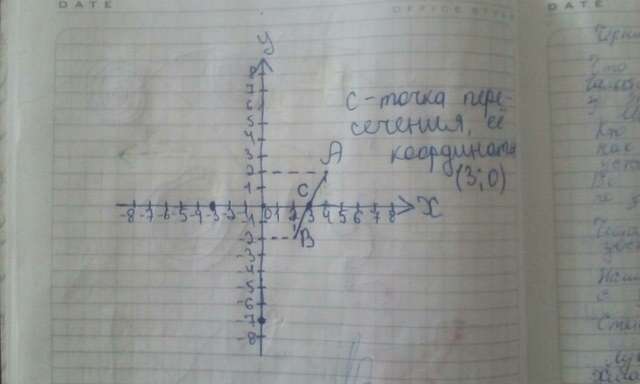 DATE
OFFICE STYLE
DATE
y
8
7
6
5
4
3
2
1
С-точка пере-
сечения, её
координаты
(3;0)
A
C
-8 -7 -6 -5 -4 -3 -2 -1 0 1 2 3 4 5 6 7 8 X
B
-2
-3
-4
-5
-6
-7
-8